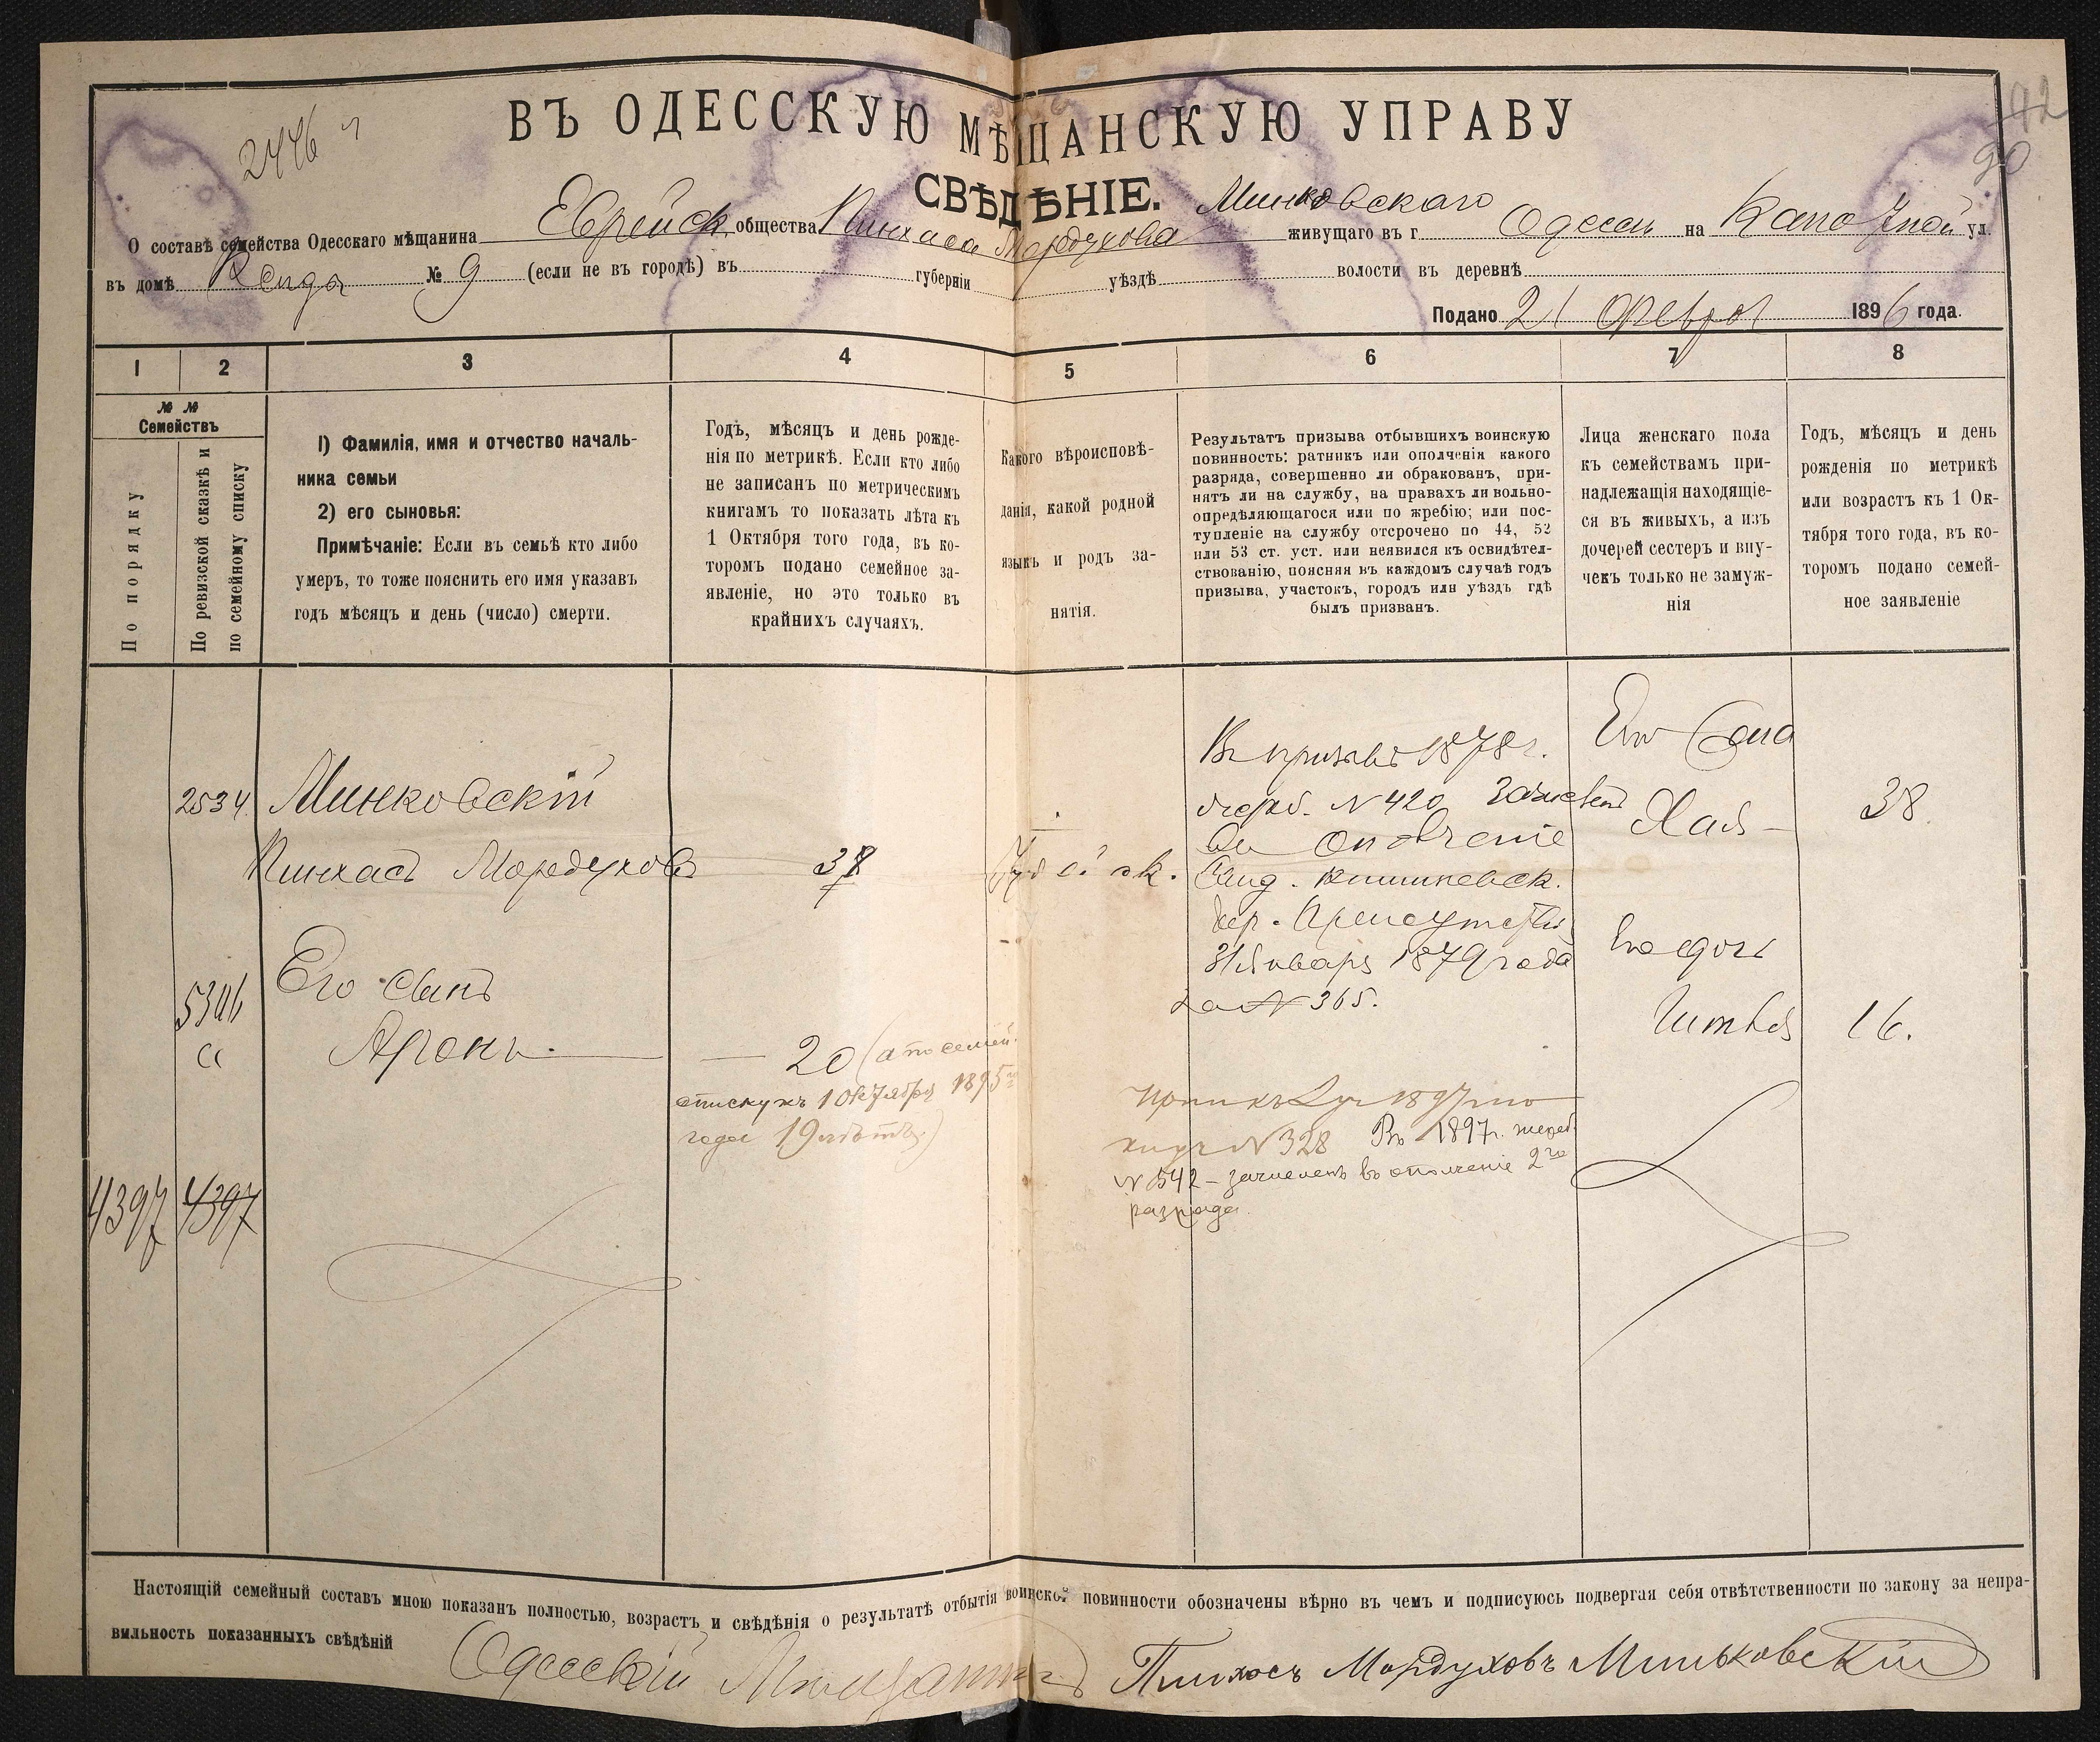 42
90
2446 ч
ВЪ ОДЕССКУЮ МѢЩАНСКУЮ УПРАВУ
СВѢДѢНІЕ.
О составѣ семейства Одесскаго мѣщанина Еврейск. общества Пинхаса Мордухова Минковскаго живущаго въ г. Одессы на Канатной ул.
въ домѣ № 9 (если не въ городѣ) въ губерніи уѣздѣ волости въ деревнѣ
Подано 21 Феврал 1896 года.
1 2 3 4 5 6 7 8
№ № Семействъ
По порядку
По ревизской сказкѣ и
по семейному списку
1) Фамилія, имя и отчество началь-
ника семьи
2) его сыновья:
Примѣчаніе: Если въ семьѣ кто либо
умеръ, то тоже пояснить его имя указавъ
годъ мѣсяцъ и день (число) смерти.
Годъ, мѣсяцъ и день рожде-
нія по метрикѣ. Если кто либо
не записанъ по метрическимъ
книгамъ то показать лѣта къ
1 Октября того года, въ ко-
торомъ подано семейное за-
явленіе, но это только въ
крайнихъ случаяхъ.
Какого вѣроисповѣ-
данія, какой родной
языкъ и родъ за-
нятія.
Результатъ призыва отбывшихъ воинскую
повинность: ратникъ или ополченія какого
разряда, совершенно ли обракованъ, при-
нятъ ли на службу, на правахъ ли вольно-
опредѣляющагося или по жребію; или пос-
тупленіе на службу отсрочено по 44, 52
или 53 ст. уст. или неявился къ освидѣтел-
ствованію, поясняя въ каждомъ случаѣ годъ
призыва, участокъ, городъ или уѣздъ гдѣ
былъ призванъ.
Лица женскаго пола
къ семействамъ при-
надлежащія находящіе-
ся въ живыхъ, а изъ
дочерей сестеръ и вну-
чекъ только не замуж-
нія
Годъ, мѣсяцъ и день
рожденія по метрикѣ
или возрастъ къ 1 Ок-
тября того года, въ ко-
торомъ подано семей-
ное заявленіе
2534 Минковскій
Пинхасъ Мордуховъ
38
Іудейск.
Въ призывъ 1878 г.
жереб. № 420
ополченіе
кишиневск.
Присутствія
31 Января 1879 года
за № 365.
Его жена
Хая 38
5346
а
Его сынъ
Аронъ
20 (а по семей.
списку къ 1 Октября 1895 го
года 19 лѣтъ.)
Его дочь
Гитля 16.
№ 328 Въ 1897 г. жереб.
№ 542 – зачисленъ въ ополченіе 2 го
разряда.
4397 4397
Настоящій семейный составъ мною показанъ полностью, возрастъ и свѣдѣнія о результатѣ отбытія воинской повинности обозначены вѣрно въ чемъ и подписуюсь подвергая себя отвѣтственности по закону за непра-
вильность показанныхъ свѣдѣній
Одесскій Мещанинъ Пинхосъ Мордуховъ Миньковскій